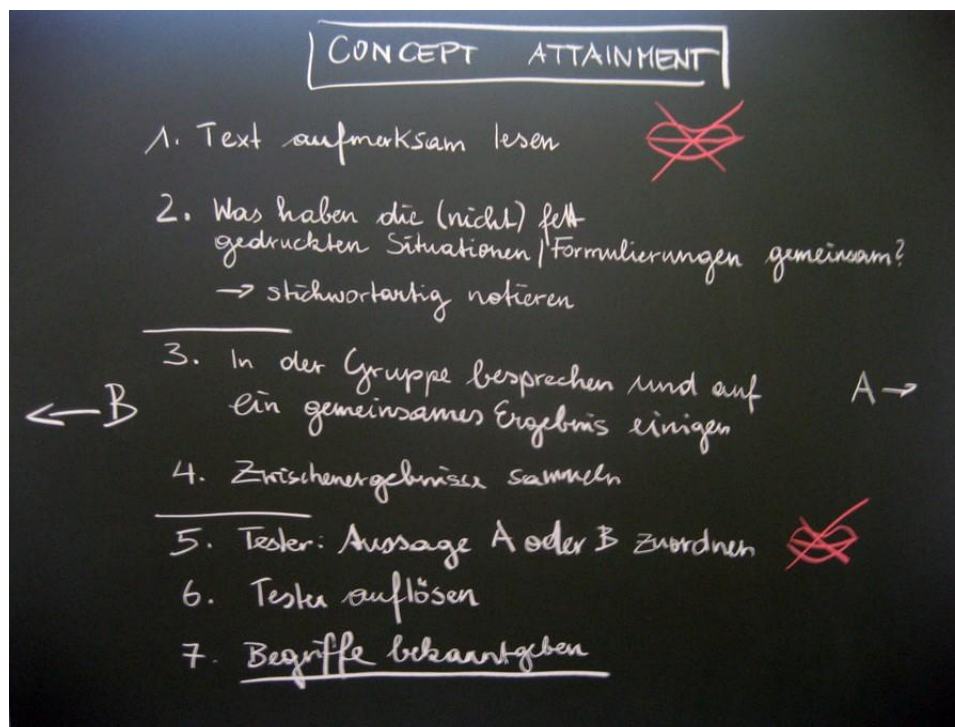 CONCEPT ATTAINMENT
1. Text aufmerksam lesen
2. Was haben die (nicht) fett
gedruckten Situationen/Formulierungen gemeinsam?
→ stichwortartig notieren
3. In der Gruppe besprechen und auf
ein gemeinsames Ergebnis einigen
← B
A →
4. Zwischenergebnisse sammeln
5. Tester: Aussage A oder B zuordnen
6. Tester auflösen
7. Begriffe bekanntgeben